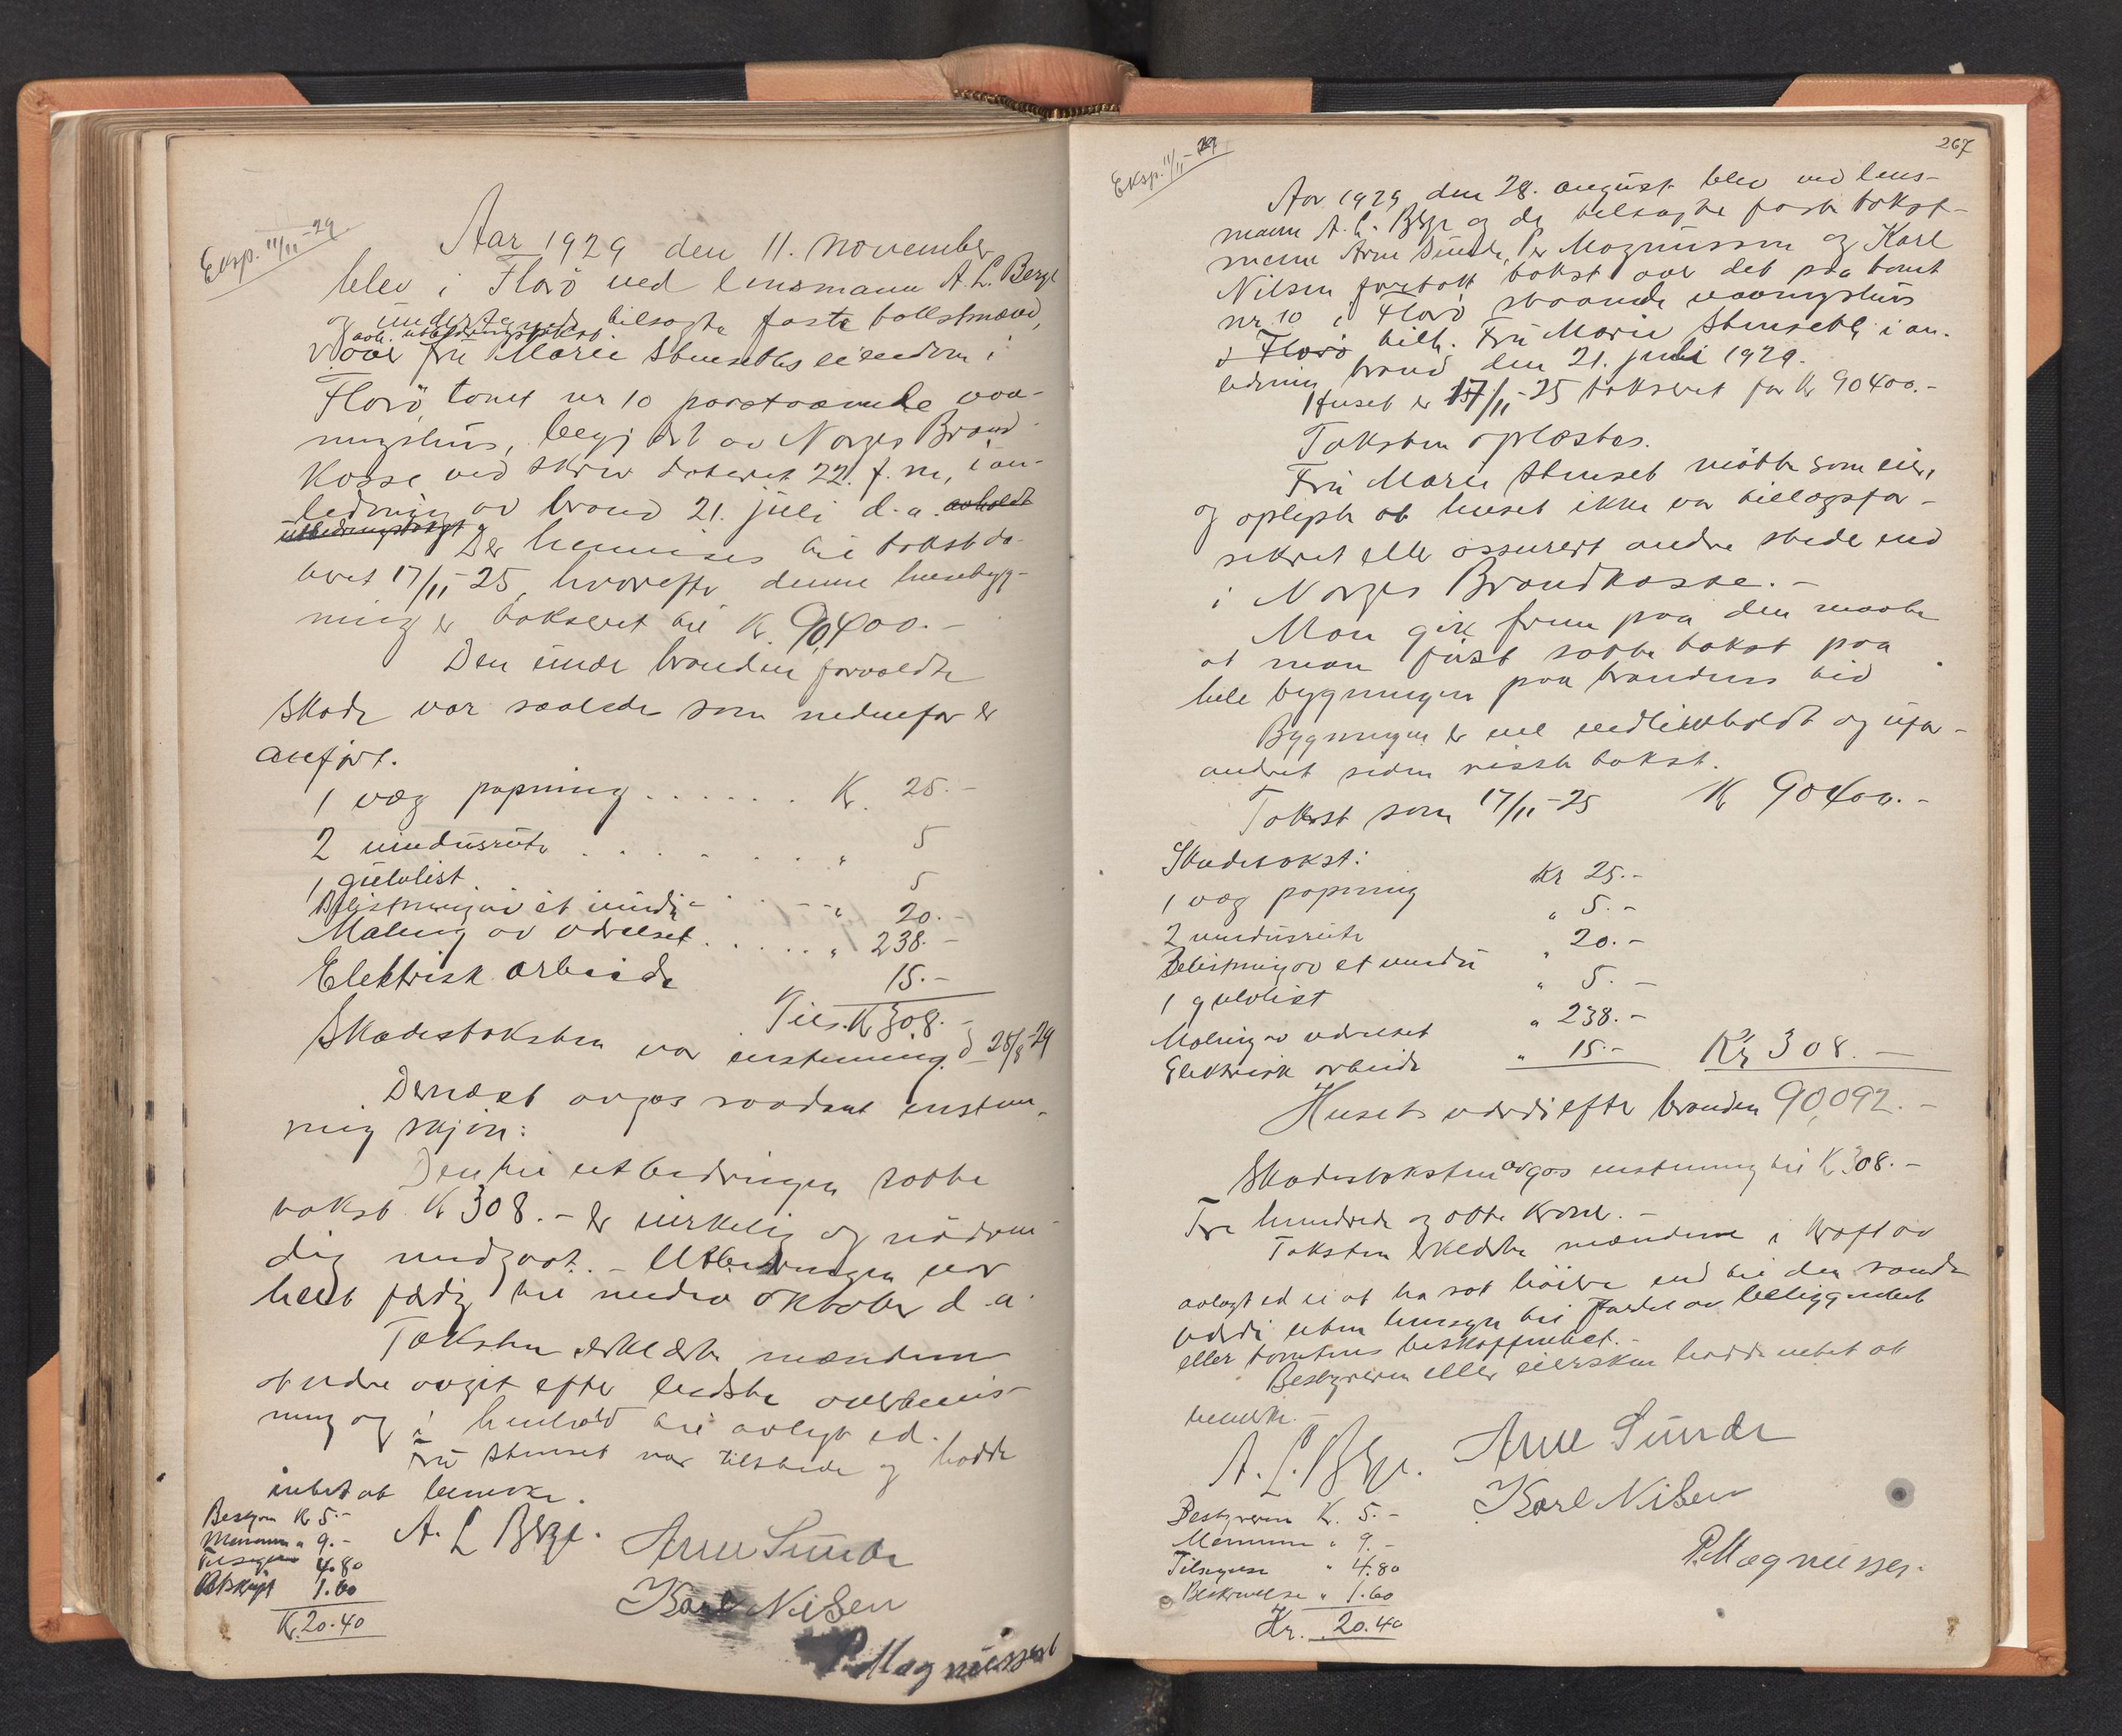 Eksp. 11/11-29
Aar 1929 den 11. november
blev i Florö ved lensmann A. L. Berge
og undertegnede tilsagte faste takstmænd,
avh. utbedringstakst
over fru Marie Stenseths eiendom i
Florö, tomt nr 10 paastaaende vaa-
ningshus, begjært av Norges Brand-
kasse ved skriv dateret 22. f. m., i an-
ledning av brand 21. juli d. a. avholdt
utbedringstakst
Der henvises til takst da-
teret 17/11-25, hvorefter denne husebyg-
ning er taksert til Kr. 90,400.-
Den under branden forvoldte
skade var saaledes som nedenfor er
anført.
1 væg papning . . . . . . Kr. 25.-
2 vindusruter . . . . . . " 5
1 gulvlist 5
Belistning av et vindu - . . - " 20.-
Maling av værelset . . . . . " 238.-
Elektrisk arbeide 15.-
Tils. Kr 308.-
Skadestaksten var enstemmig d 28/8-29
Dernæst avgas saadant enstem-
mig skjøn:
Den til utbedringen satte
takst Kr 308.- er virkelig og nödven-
dig medgaat. - Utbedringen var
helt færdig til medio oktober d. a.
Taksten erklærte mændene
at være avgit efter bedste overbevis-
ning og i henhold til avlagt ed.
Fru Stenset var tilstede og hadde
intet at bemerke.
Bestyren Kr 5.-
Mænnene " 9.-
Tilsigelse 4.80
Utskrift 1.60
Kr. 20.40
A. L Berge.
Arne Sunde
Karl Nilsen
P. Magnussen
267
Eksp. 11/11-29
Aar 1929 den 28. august blev ved lens-
mann A. L. Berge og de tilsagte faste takst-
menn Arne Sunde, Per Magnussen og Karl
Nilsen foretatt takst over det paa tomt
nr. 10 i Florö staaende vaaningshus
i Florö tilh. Fru Marie Stenseth i an-
ledning brand den 21. juli 1929.
Huset er 17/11-25 taksert for Kr 90400.-
Taksten oplæstes.
Fru Marie Stenset mötte som eier,
og oplyste at huset ikke var tillægsfor-
sikret eller assurert andre steder end
i Norges Brandkasse.-
Man gik frem paa den maate
at man först satte takst paa
hele bygningen paa brandens tid
Bygningen er vel vedlikeholdt og ufor-
andret siden sisste takst.
Takst som 17/11-25 Kr 90400.-
Skadetakst:
1 væg papning Kr 25.-
2 vindusruter " 5.-
Belistning av et vindu " 20.-
1 gulvlist " 5.-
Maling av værelset " 238.-
Elektrisk arbeide " 15.- Kr 308.-
Husets værdi efter branden 90,092.-
Skadestaksten avgas enstemmig til Kr. 308.-
Tre hundrede og otte kroner.-
Taksten erklærte mændene i kraft av
avlagt ed ei at ha sat höiere end til den sande
værdi uten hensyn til fordel av beliggenhet
eller tomtens beskaffenhet.-
Bestyreren eller eiersken hadde intet at
bemerke.-
A. L. Berge. Arne Sunde
Karl Nilsen
P. Magnussen.
Bestyreren Kr. 5.-
Mennene " 9.-
Tilsigelse " 4.80
Beskrivelse " 1.60
Kr. 20.40